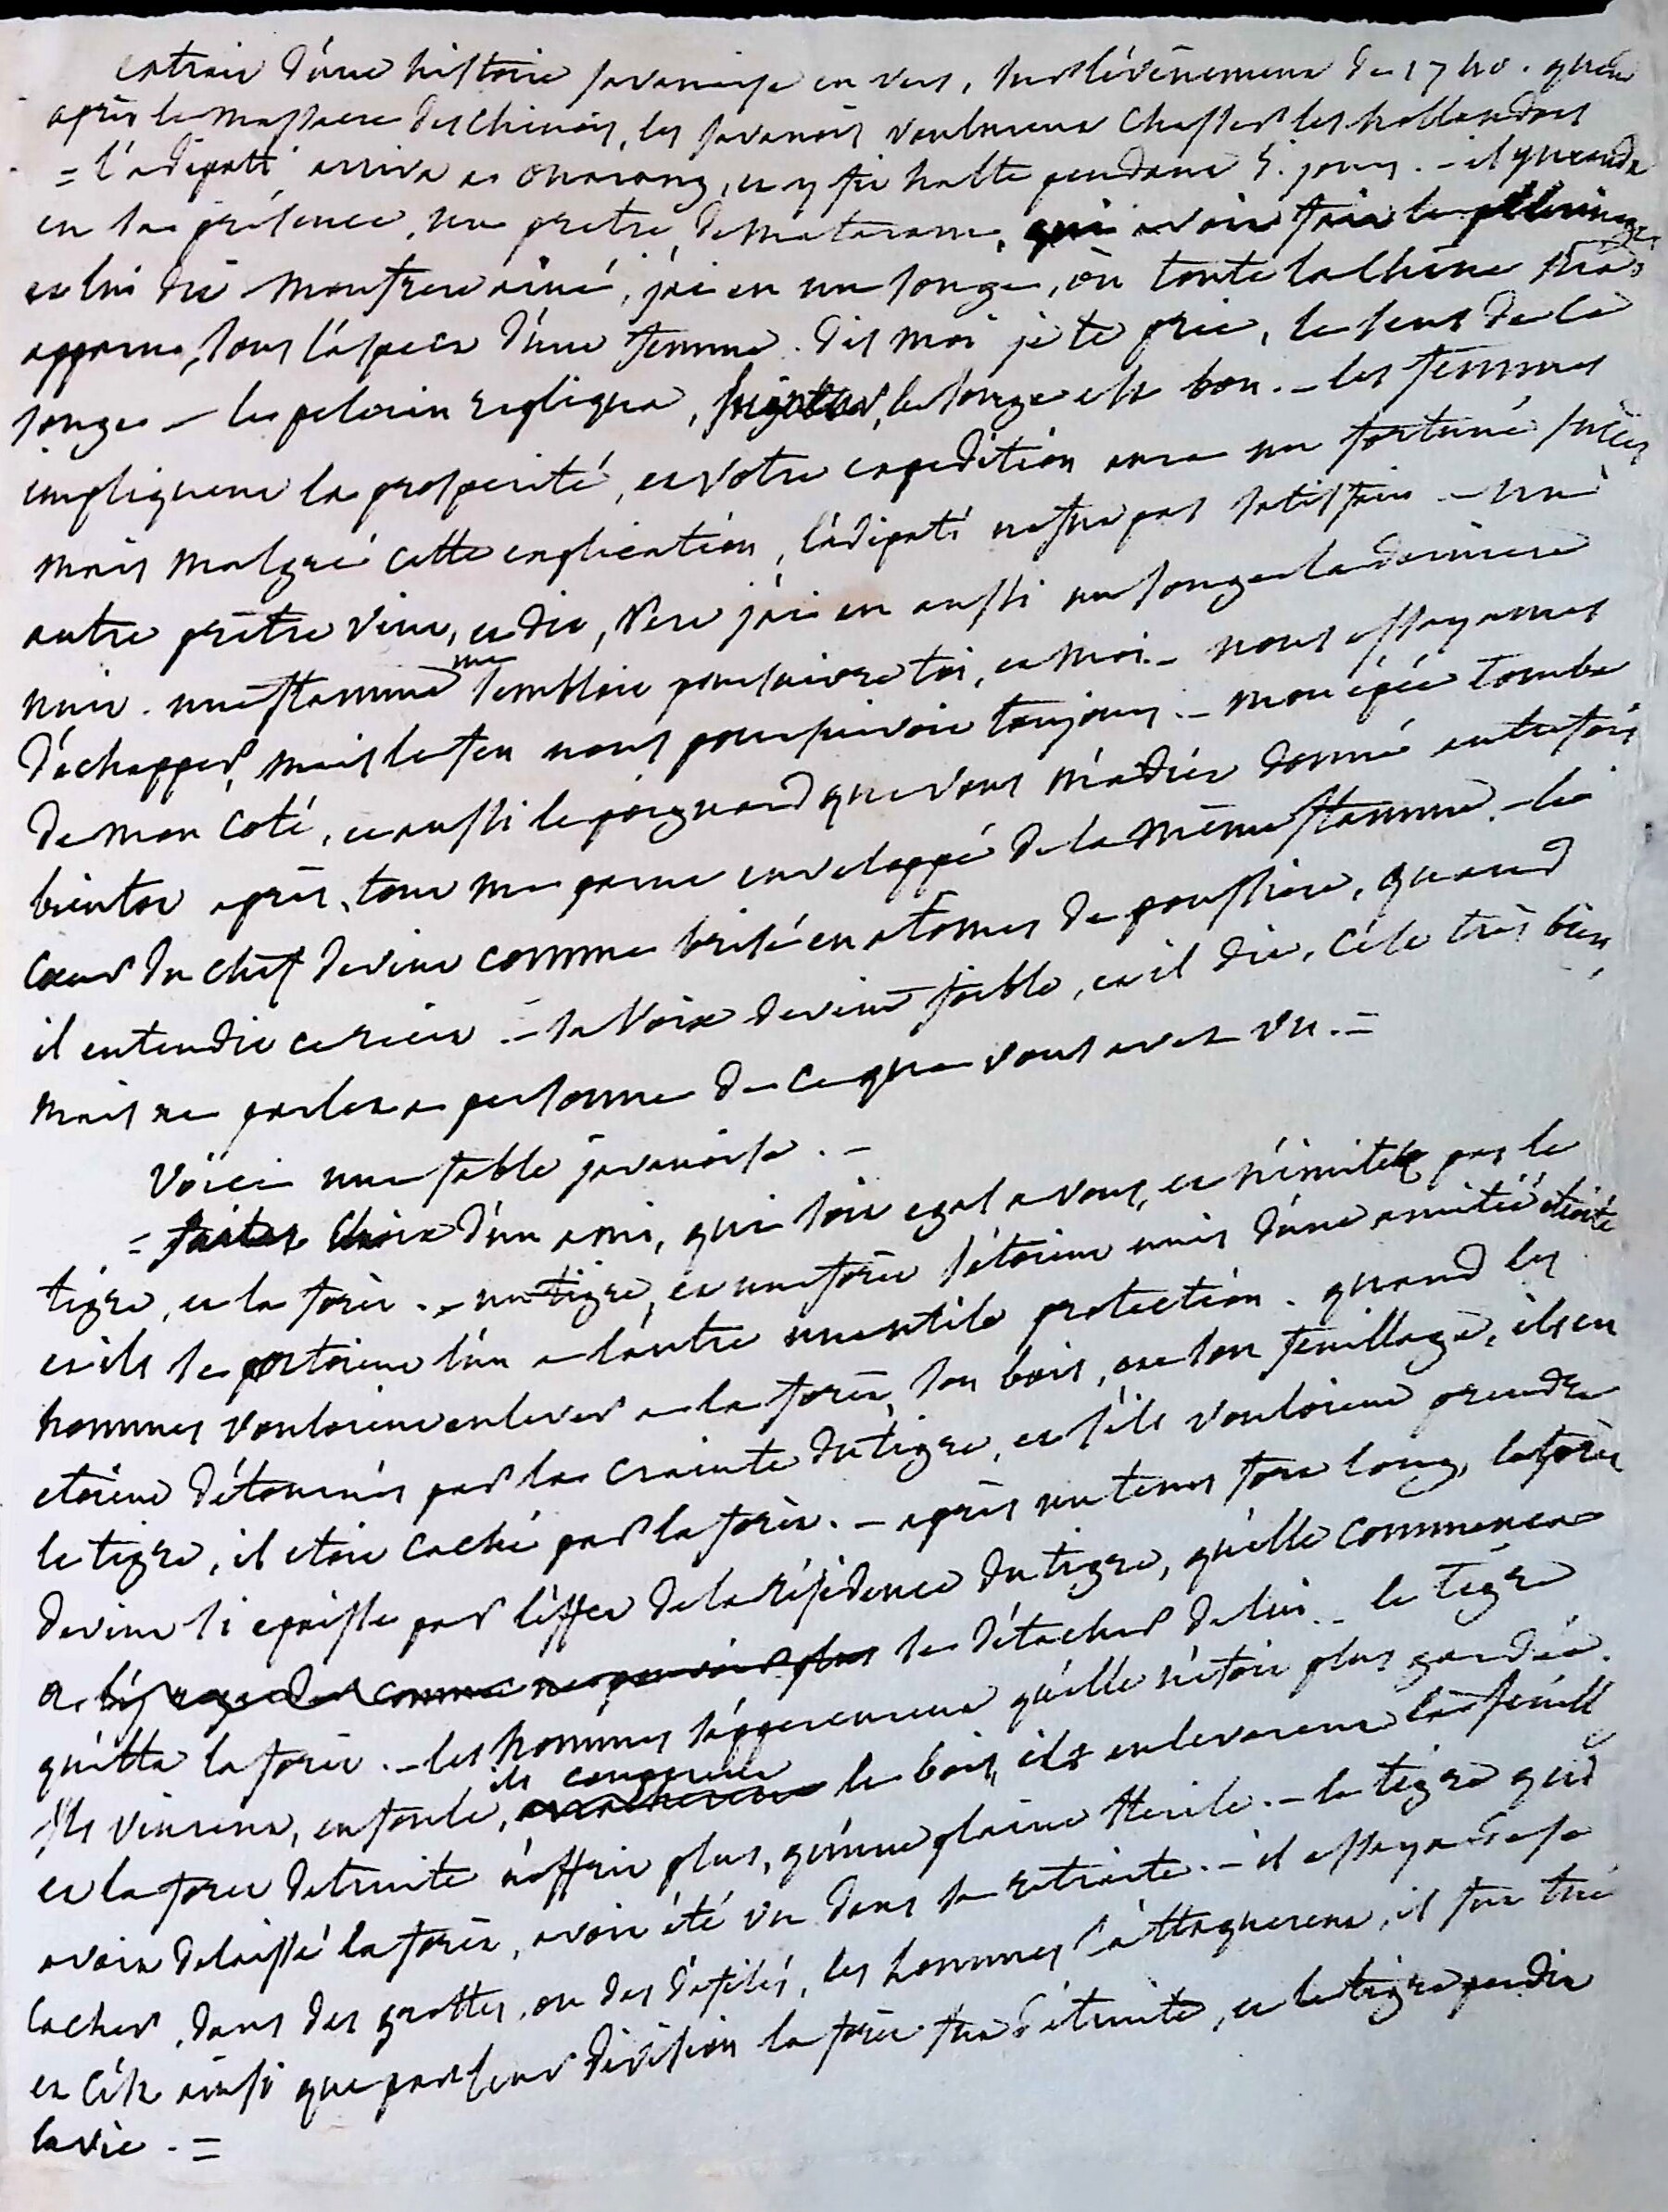 extrait d'une histoire javanaise en vers, sur l'évènement de 1740. quand
après le massacre des chinois, les javanois voulurent chasser les hollandois
= l'adipati arriva a onarang, et y fit halte pendant 5. jours. - il y manda
en sa présence, un pretre, de mataram, qui avoit fait le pélerinage
et lui dit mon frere ainé, j'ai eu un songe, où toute la chine m'a
apparu, sous l'aspect d'une femme. dis moi je te prie, le sens de ce
songe - le pelerin repliqua, le songe est bon. - les femmes
impliquent la prosperité, et votre expedition aura un fortuné succès
mais malgré cette explication, l'adipati ne fut pas satisfait - un
autre prêtre vint, et dit, Pere j'ai eu aussi un songe la derniere
nuit. une flamme me sembloit poursuivre toi, et moi. - nous essayames
d'échapper, mais le feu nous poursuivoit toujours. - mon épée tomba
de mon coté, et aussi le poignard que vous m'aviés donné autrefois
bientot après, tout me parut enveloppé de la même flamme. - le
coeur du chef devint comme brisé en atomes de poussiere, quand
il entendit ce recit. - sa voix devint foible, et il dit, c'est très bien,
mais ne parlez a personne de ce que vous avez vu. =
Voici une fable javanoise. -
= faites choix d'un ami, qui soit egal a vous, et n'imitez pas le
tigre, et la forêt. - un tigre, et une forêt s'étoient unis d'une amitié étroite
et ils se portoient l'un a l'autre une utile protection. quand les
hommes vouloient enlever a la forêt, son bois, ou son feuillage, ils en
etoient détournés par la crainte du tigre, et s'ils vouloient prendre
le tigre, il etoit caché par la forêt. - après un tems fort long, la forêt
devint si epaisse par l'effet de la résidence du tigre, qu'elle commença
a se détacher de lui. - le tigre
quitta la forêt. - les hommes s'apperçurent qu'elle n'étoit plus gardée.
ils vinrent, en foule, ils couperent le bois, ils enleverent la feuille
et la foret detruite n'offrit plus, qu'une plaine sterile. - le tigre qui
avoit delaissé la forêt, avoit été vu dans sa retraite. - il essaya de se
cacher, dans des grottes, ou des défilés, les hommes l'attaquerent, il fut tué
et c'est ainsi que par leur division la forêt fut détruite, et le tigre perdit
la vie. =